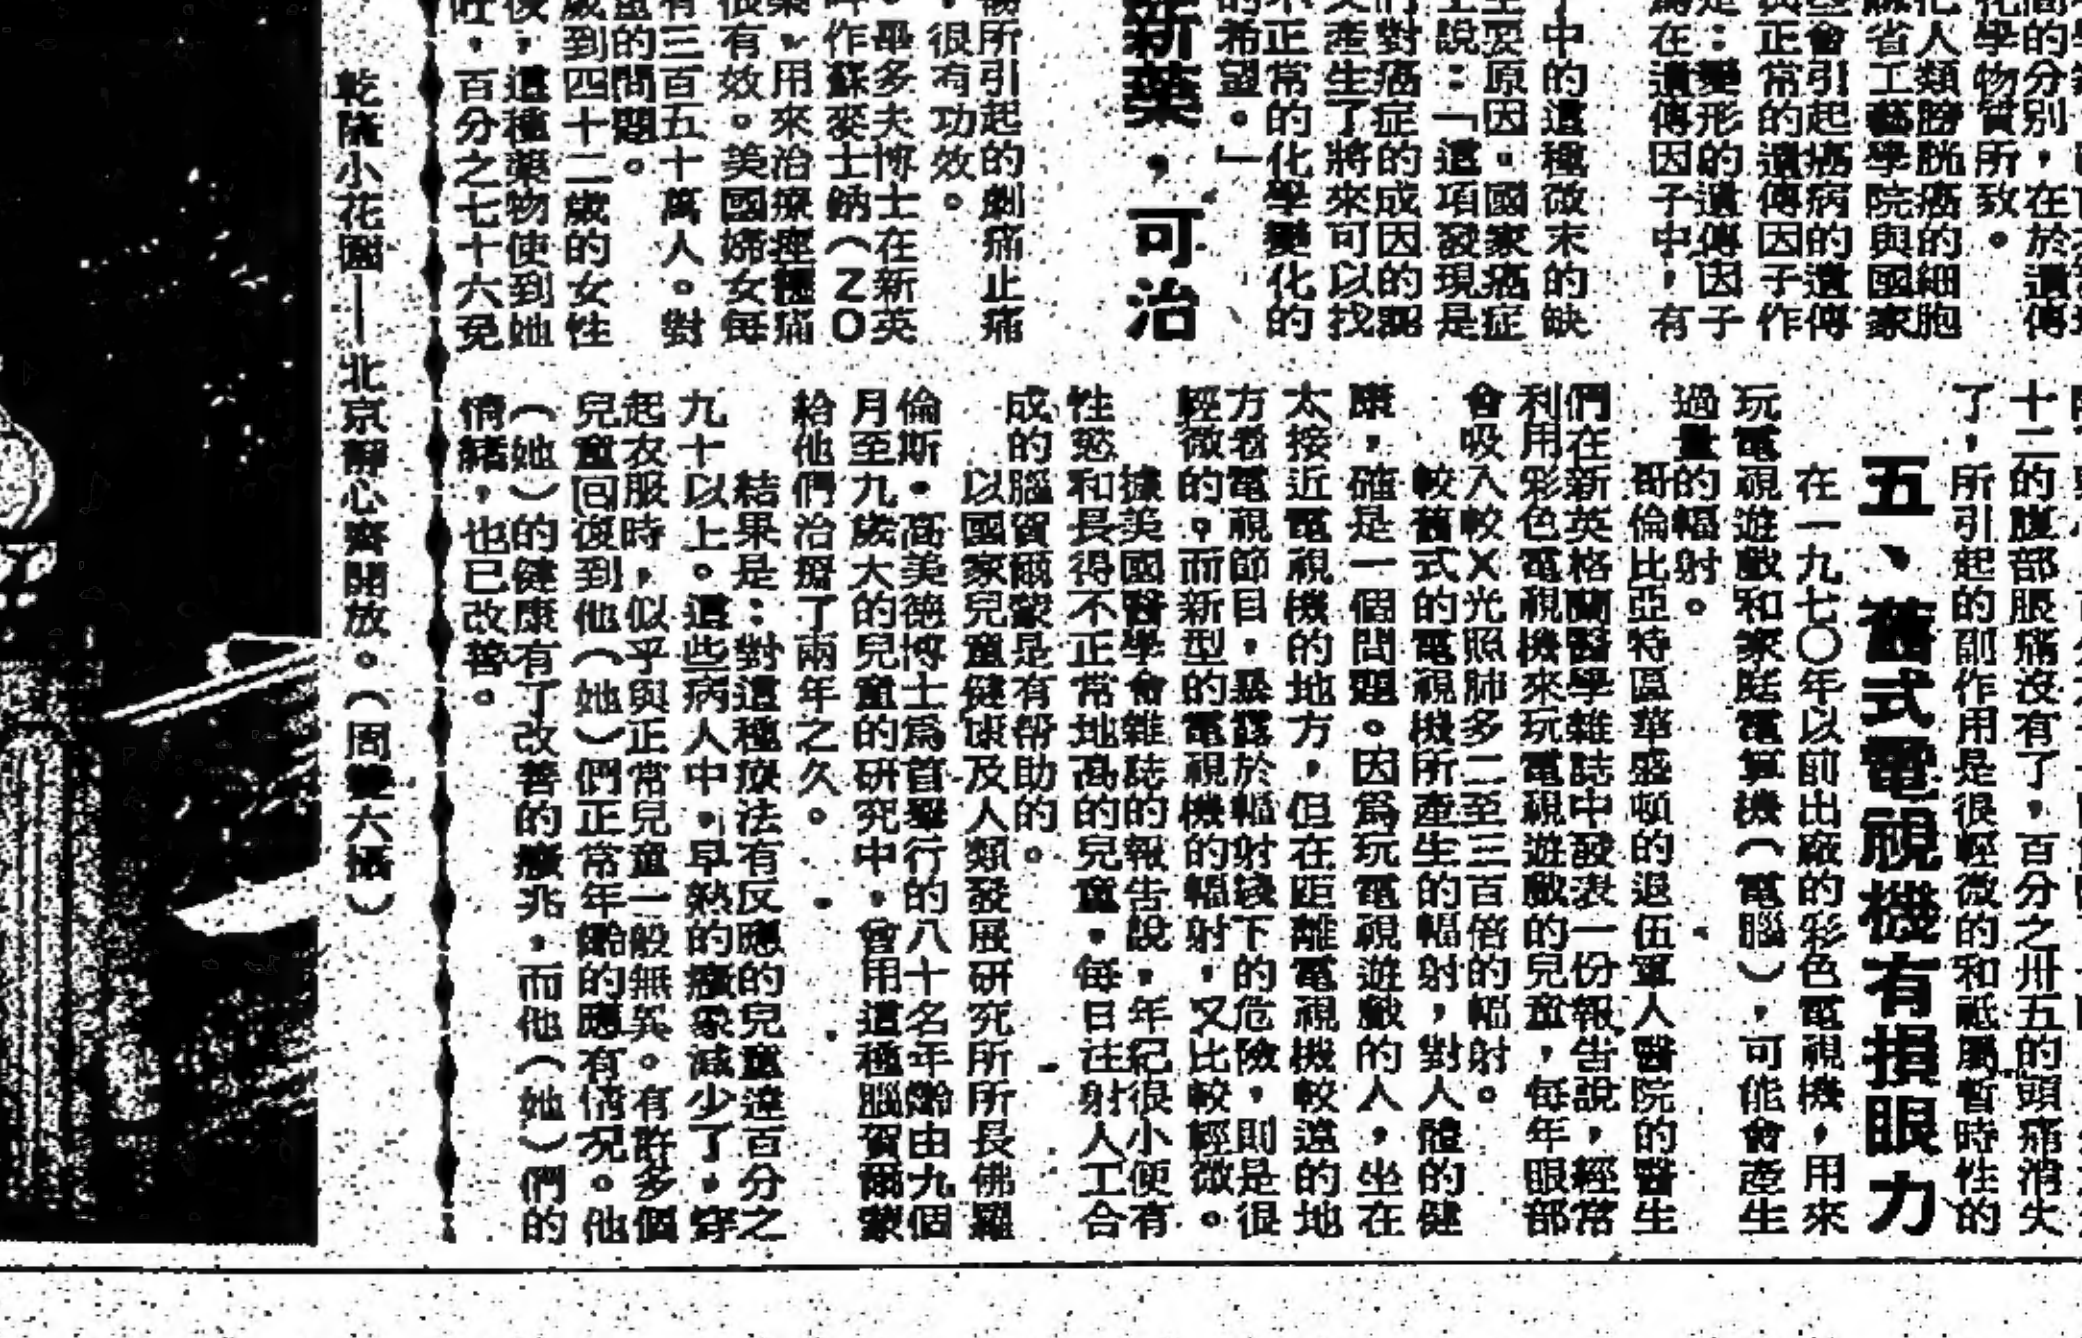 簡的分別，在於遺傳
化學物質所致。
化人類膀胱癌的細胞
省工藝學院與國家
些會引起癌病的遺傳
與正常的遺傳因子作
是：變形的遺傳因子
爲在遺傳因子中，有
中的這種微末的缺
主要原因。國家癌症
士說：「這項發現是
們對癌症的成因的認
又產生了將來可以找
不正常的化學變化的
的希望。」
新藥，可治
傷所引起的劇痛止痛
，很有功效。
。畢多夫博士在新英
叫作蘇麥士鈉（ZO
藥，用來治療痙攣痛
很有效。美國婦女每
有三百五十萬人。對
的問題。
歲到四十二歲的女性
後，這種藥物使到她
吐，百分之七十六免
十二的腹部脹痛沒有了，百分之卅五的頭痛消失
了，所引起的副作用是很輕微的和祗屬暫時性的
五、舊式電視機有損眼力
在一九七〇年以前出廠的彩色電視機，用來
玩電視遊戲和家庭電算機（電腦），可能會產生
過量的輻射。
哥倫比亞特區華盛頓的退伍軍人醫院的醫生
們在新英格蘭醫學雜誌中發表一份報告說，經常
利用彩色電視機來玩電視遊戲的兒童，每年眼部
會吸入較X光照肺多二至三百倍的輻射。
較舊式的電視機所產生的輻射，對人體的健
康，確是一個問題。因爲玩電視遊戲的人，坐在
太接近電視機的地方，但在距離電視機較遠的地
方看電視節目，暴露於輻射綫下的危險，則是很
輕微的。而新型的電視機的輻射，又比較輕微。
據美國醫學會雜誌的報告說，年紀很小便有
性慾和長得不正常地高的兒童，每日注射人工合
成的腦賀爾蒙是有帮助的。
以國家兒童健康及人類發展研究所所長佛羅
倫斯·高美德博士爲首舉行的八十名年齡由九個
月至九歲大的兒童的研究中，曾用這種腦賀爾蒙
給他們治療了兩年之久。
結果是：對這種療法有反應的兒童達百分之
九十以上。這些病人中，早熟的癥象減少了，穿
起衣服時，似乎與正常兒童一般無異。有許多個
兒童回復到他（她）們正常年齡的應有情况。他
（她）的健康有了改善的癥兆，而他（她）們的
情緒，也已改善。
乾隆小花園——北京靜心齋開放。（周雙六攝）